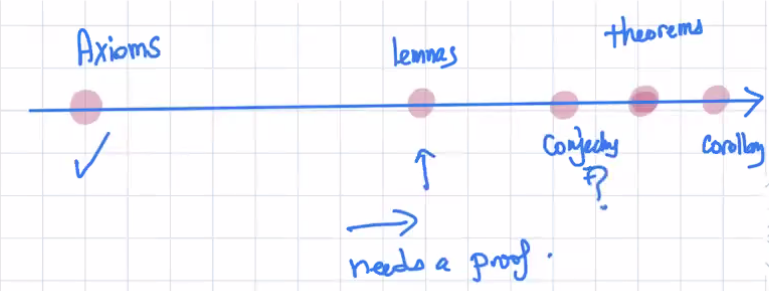 Axioms
lemmas
theorems
Conjecty
?
Corollary
needs a proof.